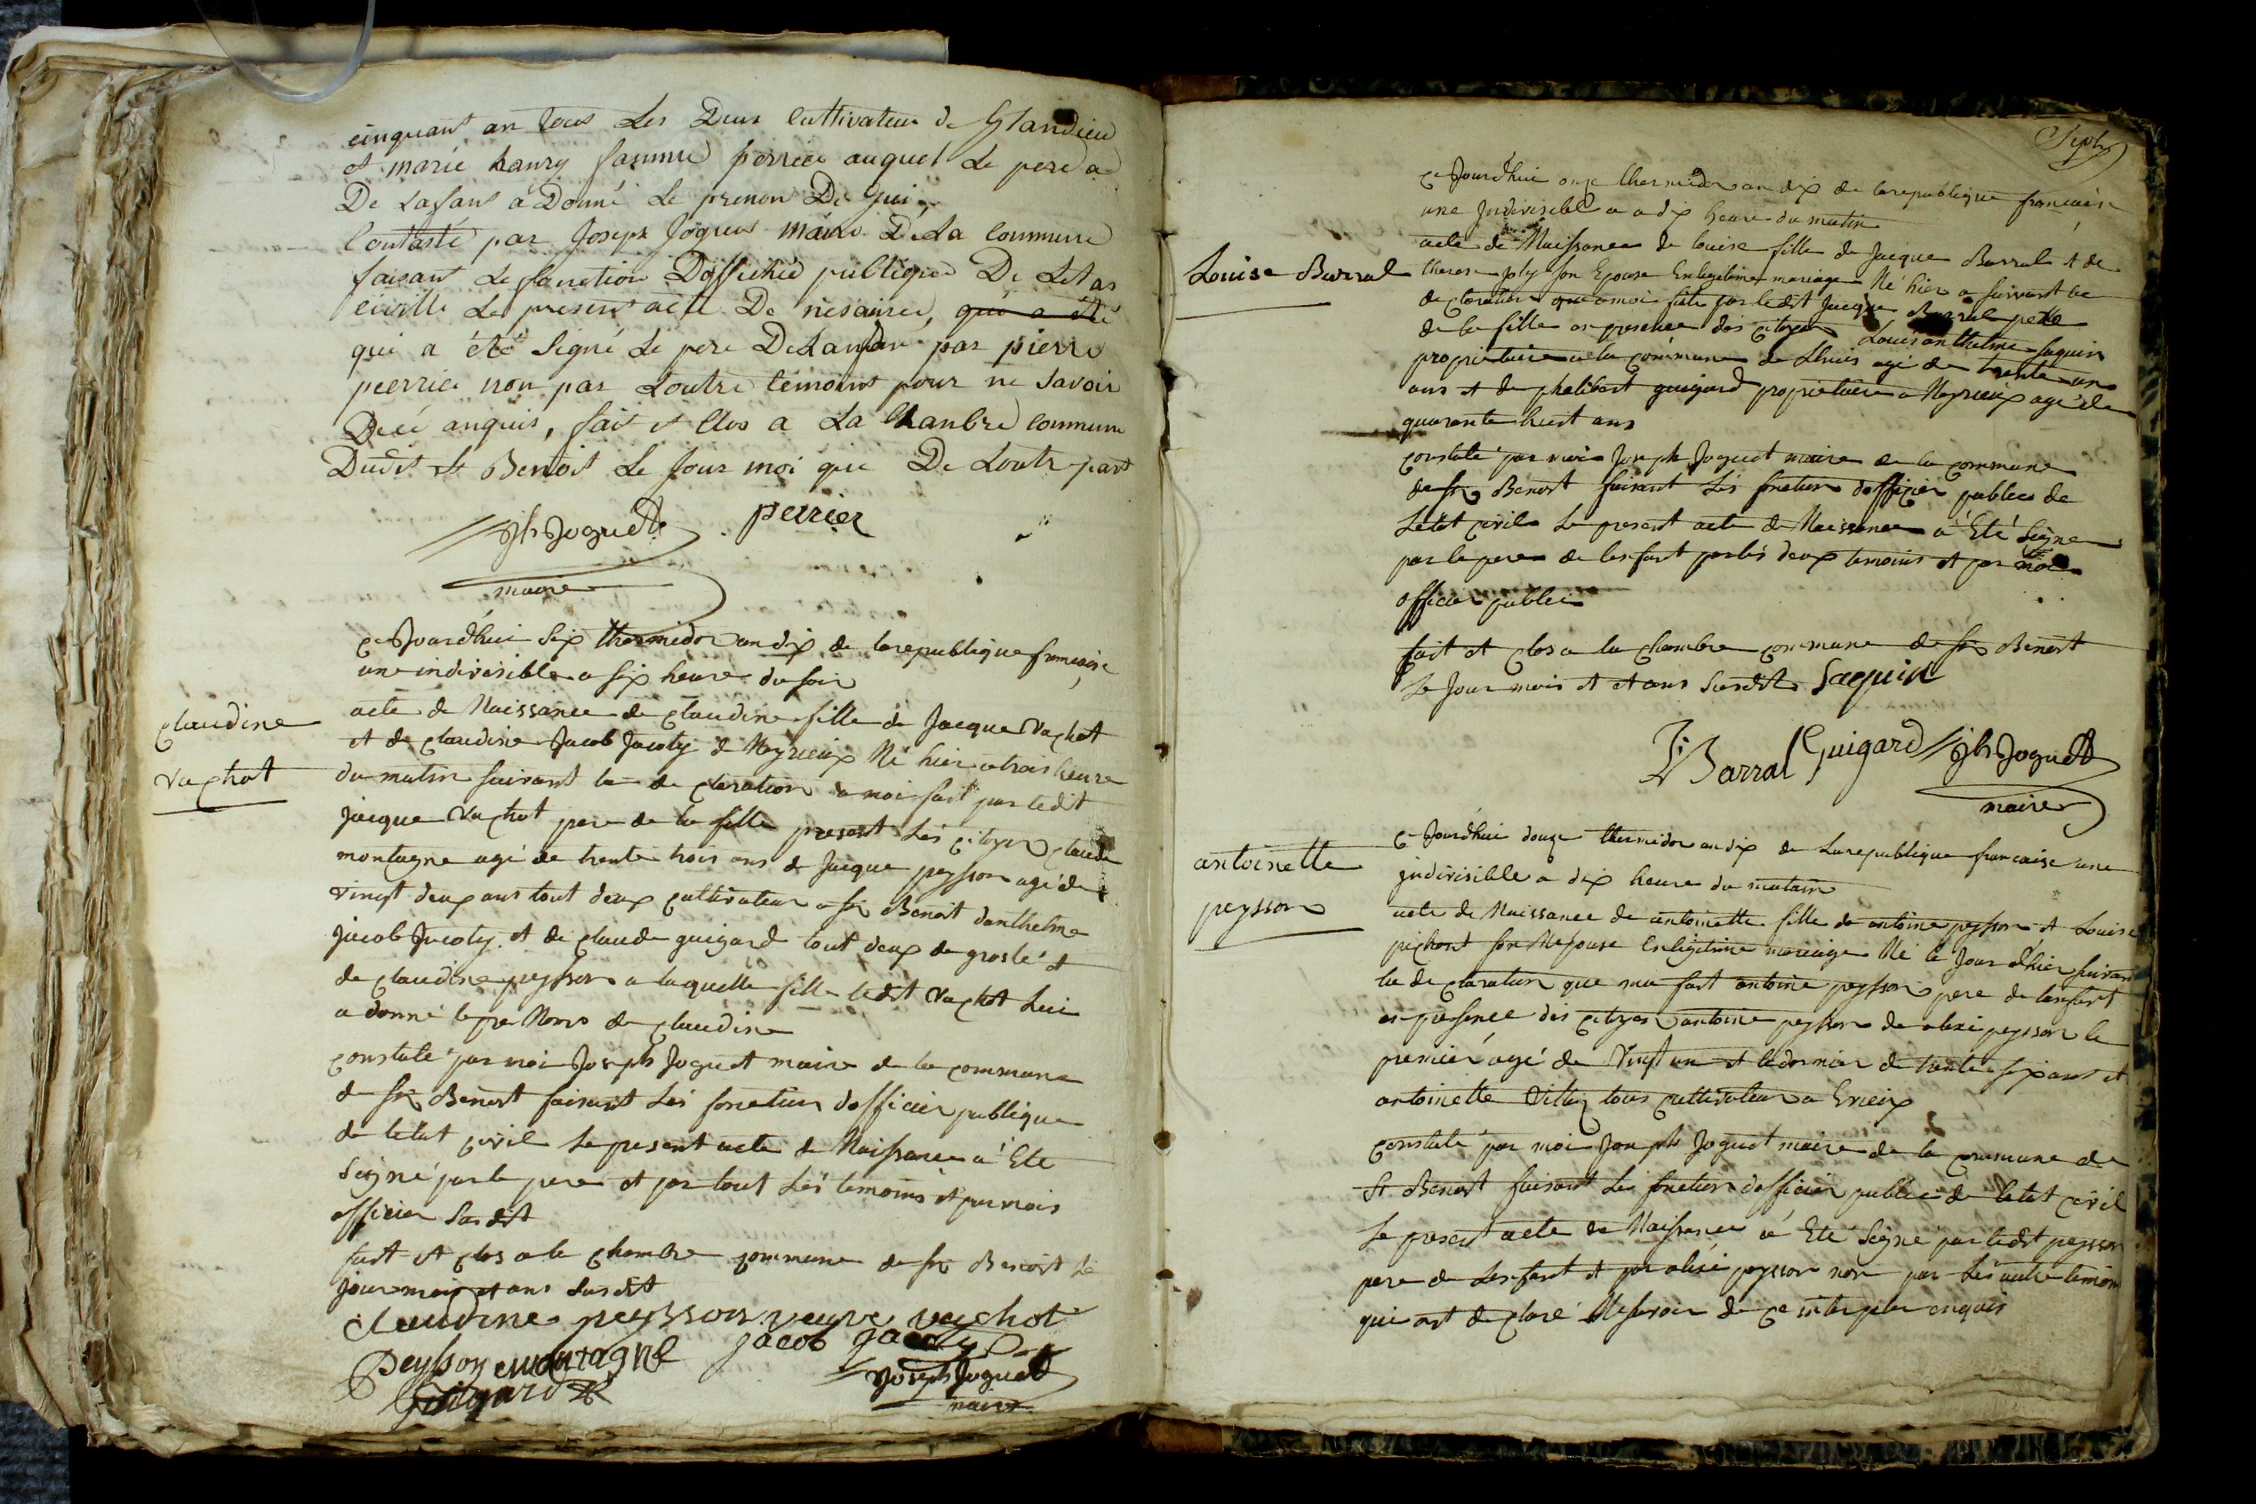 cinquant an tous Les Deux Cultivateur de Glandieu
et marie hanry famme perrier auquel Le pere a
De Lafant á Donné Le prenon De
Contasté par Joseph Joguet máire De La Commune
faisant Le fonction Doffichié publique De Letas
civille Le present acte De nésance, qui a été
qui a été Signé Le pere De Lanfan par pierre
peerrier non par Loutre témoins pour ne Savoir
De cé anquis, fait et Clos a La Chanbre Commune
Dudit St Benoit Le Jour moi que De Loutr part
Jh Joguet perrier
maire
Ce Jourdhui Six thermidor an dix de la republique francaise
une indivisible a six heure du soir
claudine
vachot
acte de Naissance de claudine fille de Jacque Vachot
et de claudine Jacob Jacoty de Meyrieux Né hier a trois heure
du matin suivant la de claration a moi fait par ledit
jacque Vachot pere de la fille present Les citoyen claude
montagne agé de trente trois ans & Jacque peysson agé de
vingt deux ans tout deux cultivateur a St Benoit danthelme
jacob Jacoty et de claude guigard tout deux de groslé et
de claudine peysson a laquelle fille ledit Vachot Lui
a donné le pre Nom de claudine
constaté par moi Joseph Joguet maire de la commune
de St Benoit faisant Les fonction dofficier publique
de letat civil Le present acte de Naissance a Eté
Signé par le pere et par tout Les temoins et par moi
officier Susdit
fait et clos a la chambre commune de St Benoit Le
jour mois et ans Susdit
claudine peysson veuve vachot
Peysson montagne jacob jacoty
Guigard Joseph Joguet
maire
Sept
Ce Jourdhui onze thermidor an dix de la republique francaise
une Indivisible a dix heure du matin
Louise Barral
acte de Naissance de louise fille de Jacque Barral et de
therese joly son Epouse En legitime mariage Né hier a suivant la
de claration que a moi fait par ledit Jacque Barral pere
de la fille en presence des citoyen Louis anthelme Saquin
propriétaire a la commune de Lhuis agé de trente un
ans et de philibert guigard propriétaire a Meyrieux agé de
quarante huit ans
constaté par moi Joseph Joguet maire de la commune
de St Benoit faisant Les fonction dofficier public de
Letat civil Le present acte de Naissance a Eté Signé
par le pere de lenfant par les deux temoins et par moi
officier public
fait et clos a la chambre commune de St Benoit
Le Jour mois et et ans Susdit Saquin
Barral Guigard Jh Joguet
maire
antoinette
peysson
Ce Jourdhui douze thermidor an dix de La republique francaise une
indivisible a dix heure du matain
acte de Naissance de antoinette fille de antoine peysson et Louise
pichont son Epouse En legitime mariage Né le Jour dhier suivant
la de claration que ma fait antoine peysson pere de lanfant
en presence des citoyen antoine peysson de alexi peysson le
premier agé de vingt un et le dernier de trente six ans et
antoinette tous cultivateur a Erieux
constaté par moi Joseph Joguet maire de la commune de
St Benoit faisant Les fonction dofficier public de letat civil
Le present acte de Naissance a Eté Signé par ledit peysson
pere de Lenfant et par alexi peysson non par Les autre temoin
qui ont de claré Ne savoir de ce interpeler enquis